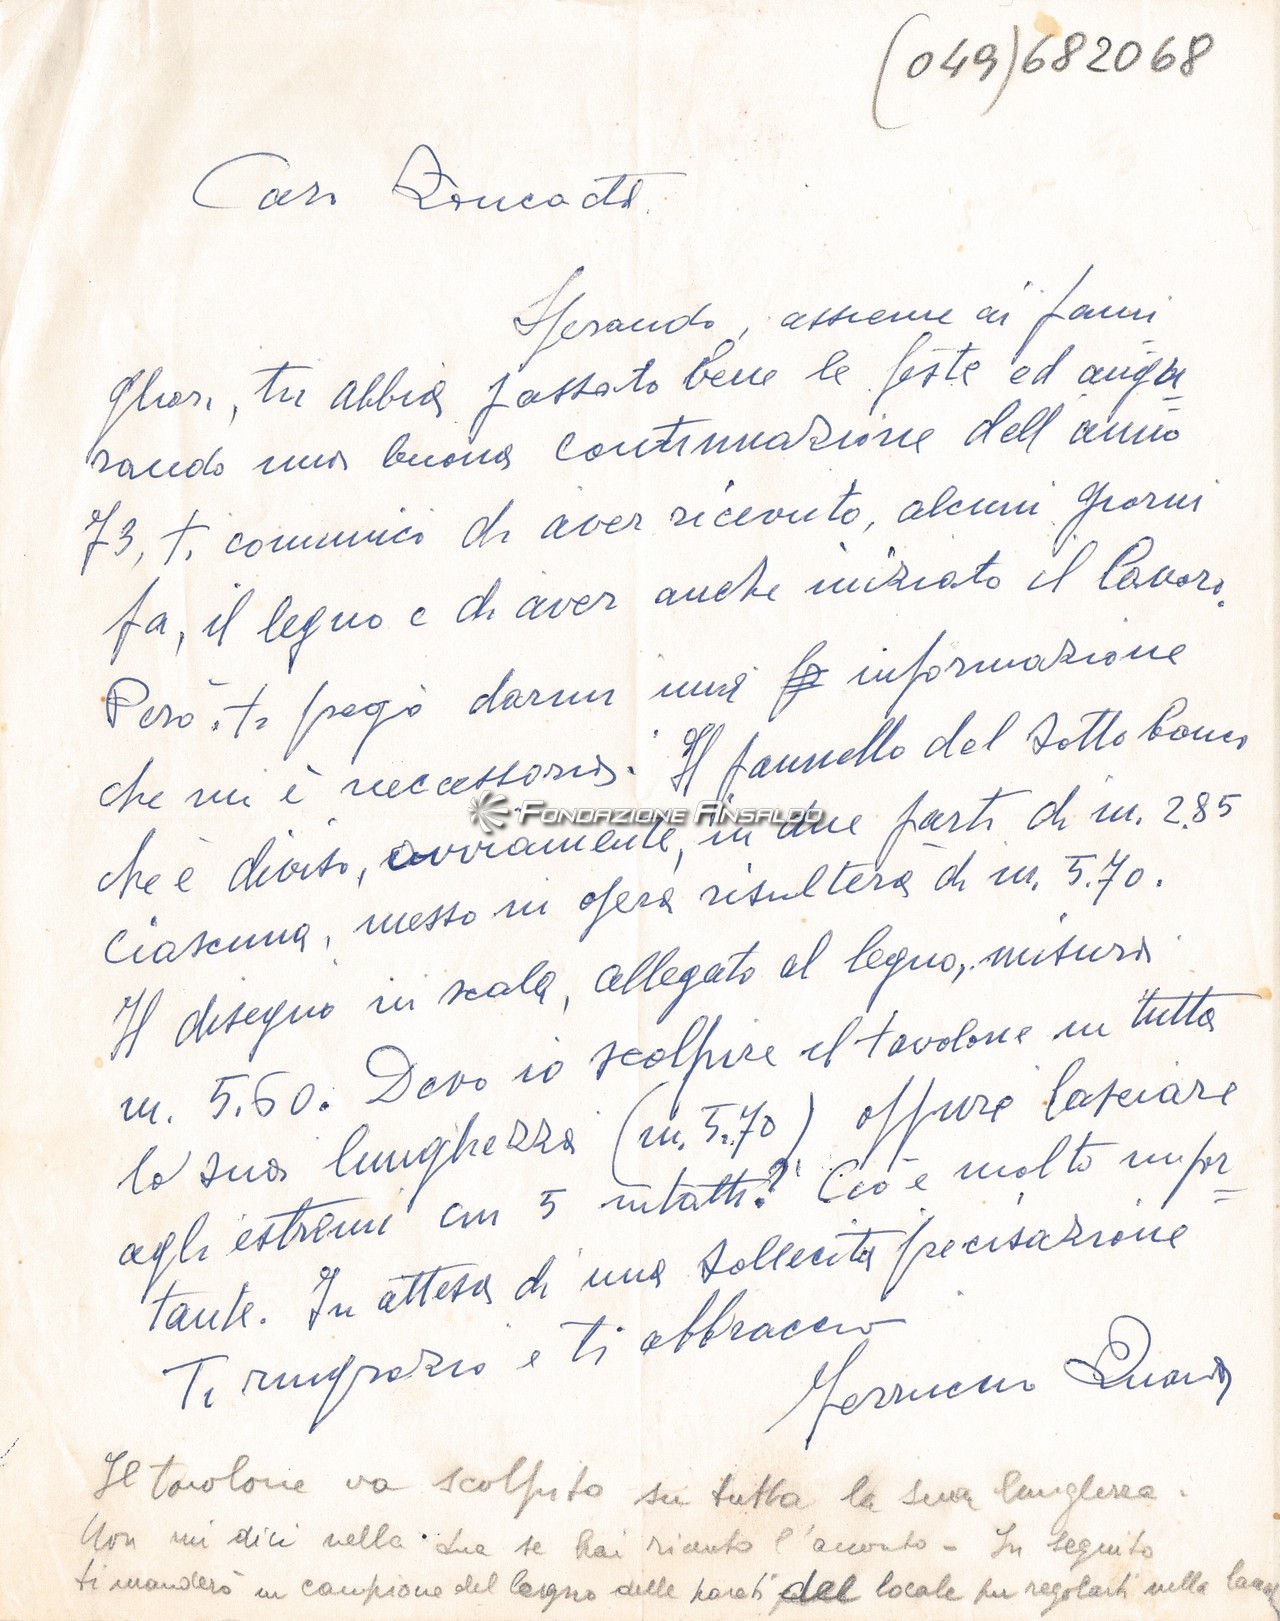 (049)682068
Caro Roncati.
Sperando, assieme ai fami
gliari, tu abbia passato bene le feste ed augu=
rando una buona continuazione dell'anno
73, ti comunico di aver ricevuto, alcuni giorni
fa, il legno e di aver anche iniziato il lavoro.
Però ti prego darmi una informazione
che mi è necessaria. Il pannello del sotto banco
che è diviso, ovviamente, in due parti di m. 2.85
ciascuna, messo in opera risulterà di m. 5.70.
Il disegno in scala, allegato al legno, misura
m. 5.60. Devo io scolpire il tavolone in tutta
la sua lunghezza (m. 5.70) oppure lasciare
agli estremi cm 5 intatti? Ciò è molto impor=
tante. In attesa di una sollecita precisazione
Ti ringrazio e ti abbraccio
Ferruccio
Il tavolone va scolpito su tutta la sua lunghezza.
Non mi dici nella tua se hai ricevuto l'acconto - In seguito
ti manderò un campione del legno delle pareti del locale per regolarti nella
Fondazione Ansaldo